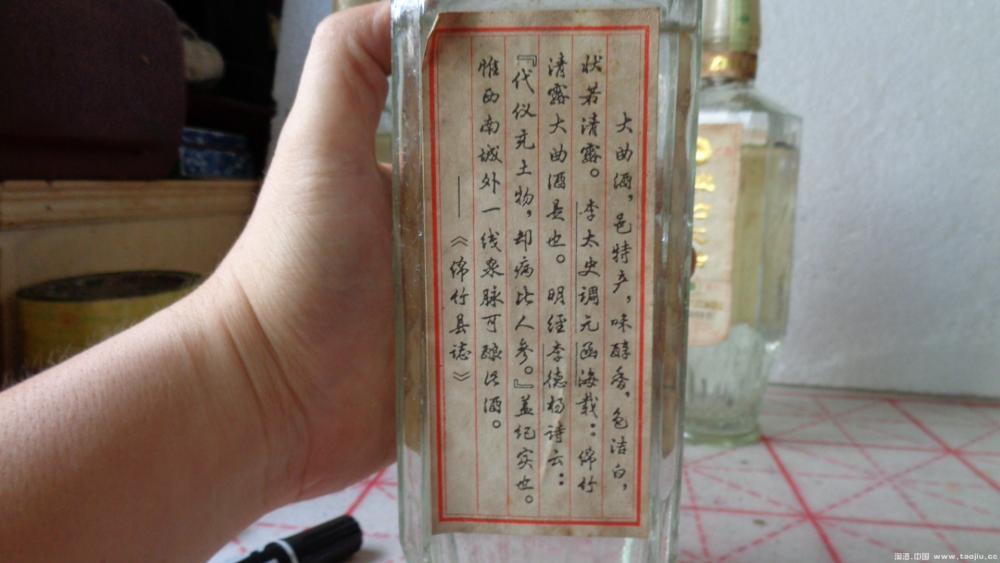 大曲酒，邑特产，味醇香，色洁白，
状若清露。李太史调元函海载：绵竹
清露大曲酒是也。明经李德扬诗云：
『代仪充土物，却病比人参。』盖纪实也。
惟西南城外一线泉脉可酿此酒。
——《绵竹县誌》
淘酒.中国 www.taojiu.cc